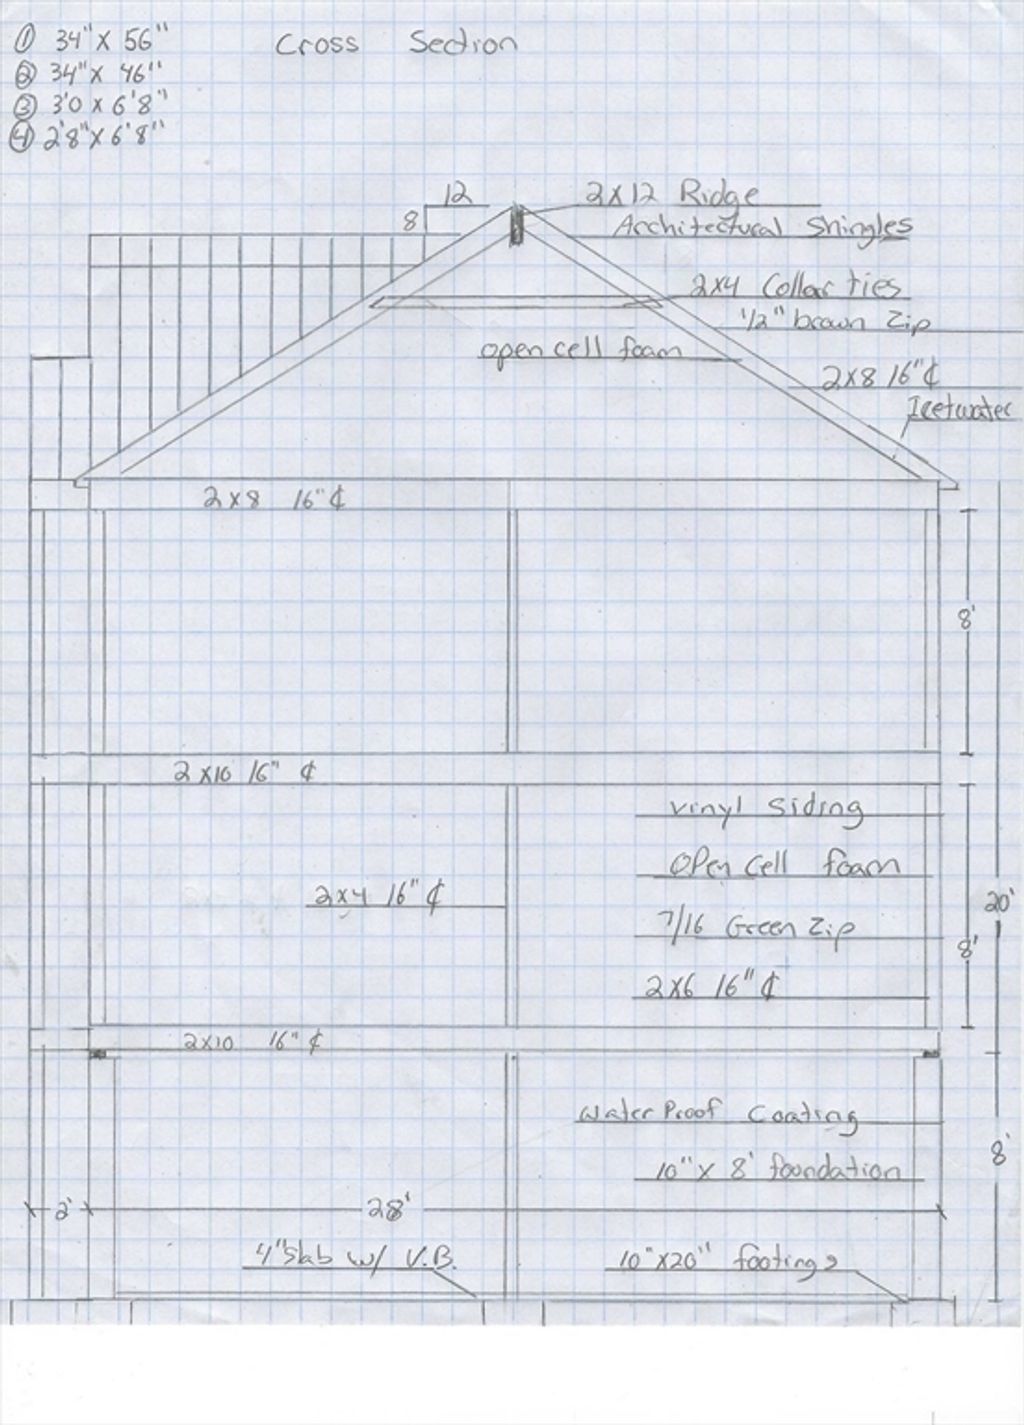 ① 34" X 56"
Cross Section
② 34" X 46"
③ 3'0 X 6'8"
④ 2'8" X 6'8"
12
8
2X12 Ridge
Architectural Shingles
2x4 Collar ties
1/2" brown Zip
open cell foam
2X8 16" ₵
Ice+water
2X8 16" ₵
8'
2X10 16" ₵
Vinyl Siding
OPen Cell foam
2x4 16" ₵
20'
7/16 Green Zip
8'
2X6 16" ₵
2X10 16" ₵
Water Proof Coating
8'
10" X 8' foundation
2'
28'
4" Slab w/ V.B.
10" X20" footings